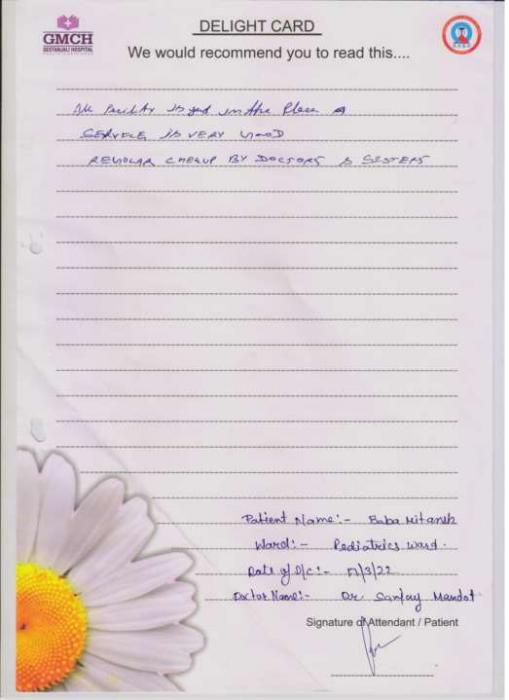 GMCH
GEETANJALI HOSPITAL
DELIGHT CARD
We would recommend you to read this....
All facility is gd in the Place &
SERVICE IS VERY GOOD
REGULAR CHEKUP BY DOCTORS & SISTERS
Patient Name:- Baba Mitansh
Ward:- Pediatrics Ward.
Date of D/C:- 17/3/22
Doctor Name:- Dr. Sanjay Mandot
Signature of Attendant / Patient